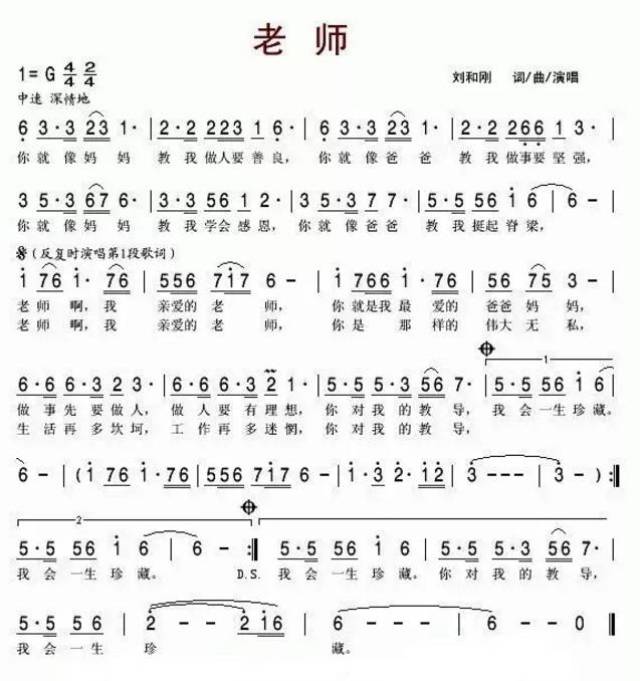 老师
1=G 4/4 2/4
刘和刚 词/曲/演唱
中速 深情地
6 3·3 23 1· | 2·2 223 1 6· | 6 3·3 23 1· | 2·2 266 3· |
你就像妈妈 教我做人要善良， 你就像爸爸 教我做事要坚强，
3 5·3 67 6· | 3·3 56 1 2· | 3 5·3 7 7· | 5·5 56 1 6 | 6 - |
你就像妈妈 教我学会感恩， 你就像爸爸 教我挺起脊梁，
(反复时演唱第1段歌词)
1 76 1 · 76 | 556 717 6 - | 1 766 1 · 76 | 5·5 35 6 - |
老师啊，我 亲爱的老师， 你就是我最爱的爸爸妈妈，
老师啊，我 亲爱的老师， 你是那样的伟大无私，
1
6·6 6·3 23 2· | 6·6 6·3 2 1· | 3·3 5·3 56 7· | 5·5 56 1 6 |
做事先要做人， 做人要有理想， 你对我的教导， 我会一生珍藏。
生活再多坎坷， 工作再多迷惘， 你对我的教导，
6 - | (1 76 1·76 | 5·556 717 6 - | 1·3 2·12 | 3 - - - | 3 -) :||
2
5·5 56 1 6 | 6 - - - :|| 5·5 56 1 6 | 6 - | 3·3 5·3 56 7· |
我会一生珍藏。 D.S. 我会一生珍藏。你对我的教导，
5·5 56 | 2 - - 2 16 | 6 - - - | 6 - - 0 ||
我会一生珍 藏。